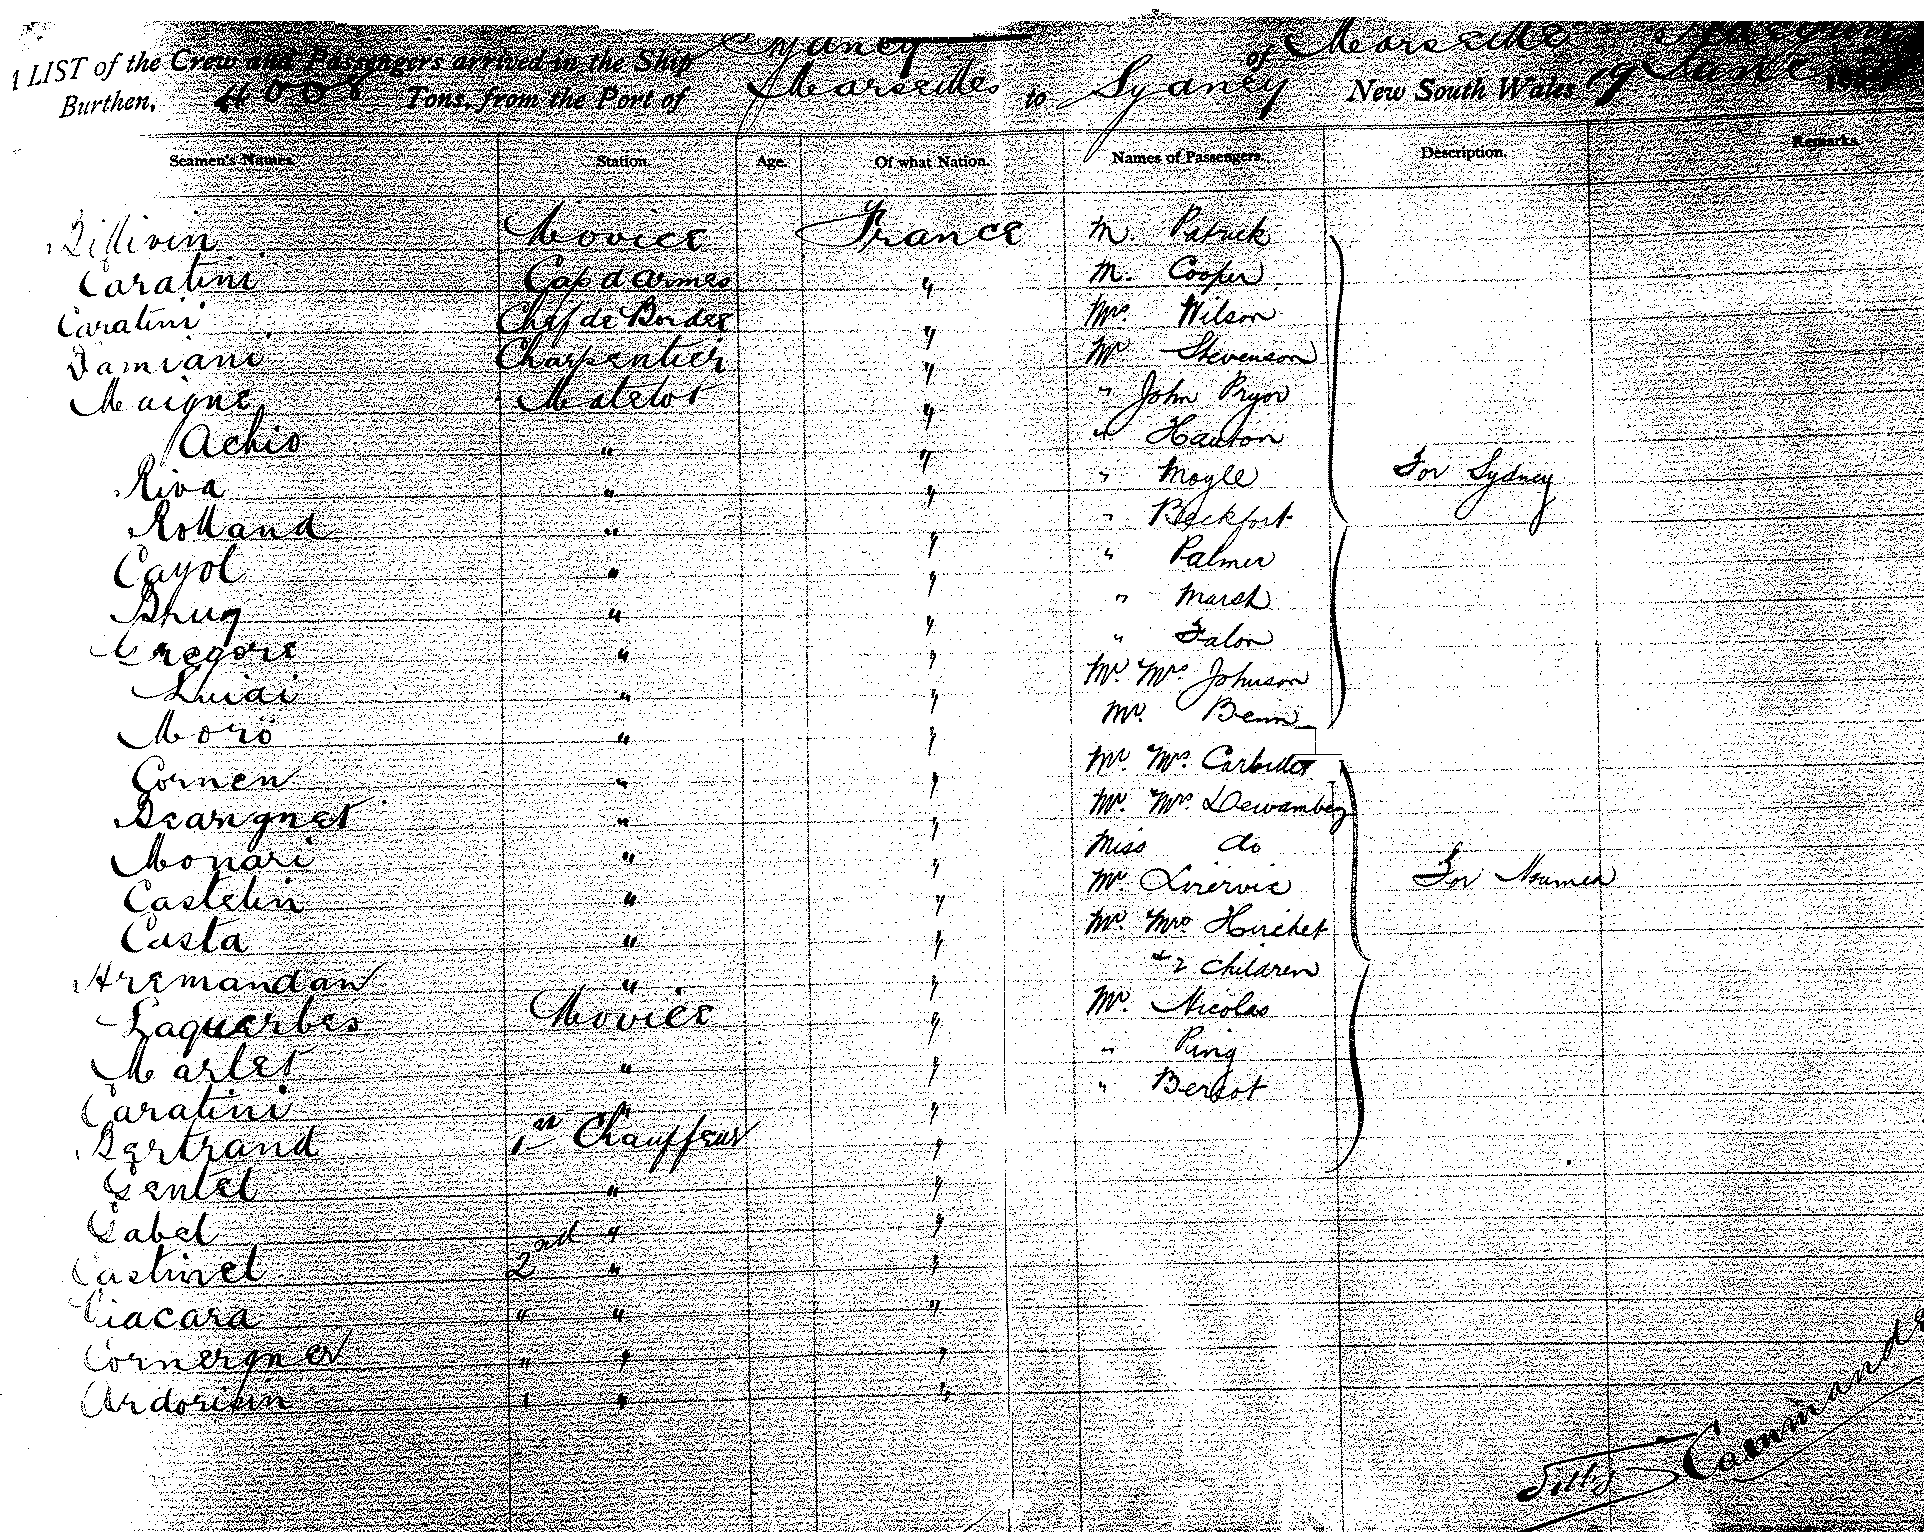 A LIST of the Crew and Passengers arrived in the Ship Sydney of Marseille
Burthen, 4008 Tons, from the Port of Marseilles to Sydney New South Wales 19
Seamen's Names. Station. Age. Of what Nation. Names of Passengers. Description. Remarks.
Novice France M. Patrick
Caratini Cap d'armes " M. Cooper
Caratini Chef de Bordée " Mrs. Wilson
Damiani Charpentier " Mr Stevenson
Maigne Matelot " " John Pryor
Achio " " " Hanton
Riva " " " Moyle For Sydney
Rolland " " " Beckfort
Cayol " " " Palmer
" " " Marsh
Gregori " " " Falon
Luidi " " Mr Mrs Johnson
Moro " " Mr. Benn
Cornen " " Mr. Mrs.
Bearagnet " " Mr. Mrs
Monari " " Miss do
Castelin " " Mr. For Noumea
Casta " " Mr. Mrs Hirchet
Aremandan " " + 2 Children
Laquerbes Novice " Mr. Nicolas
Marlet " " " Ping
Caratini " " " Bersot
Bertrand 1er Chauffeur "
Gentel " "
Gabel " "
Castinel 2nd " "
Ciacara " " "
" " "
" " "
Commander